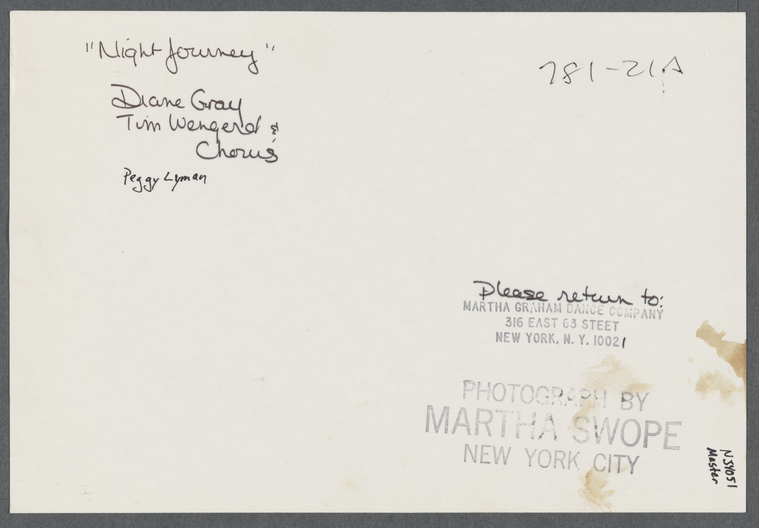 "Night Journey"
Diane Gray
Tim Wengerd &
Chorus
Peggy Lyman
781-21A
Please return to:
MARTHA GRAHAM DANCE COMPANY
316 EAST 63 STEET
NEW YORK, N. Y. 10021
PHOTOGRAPH BY
MARTHA SWOPE
NEW YORK CITY
Master